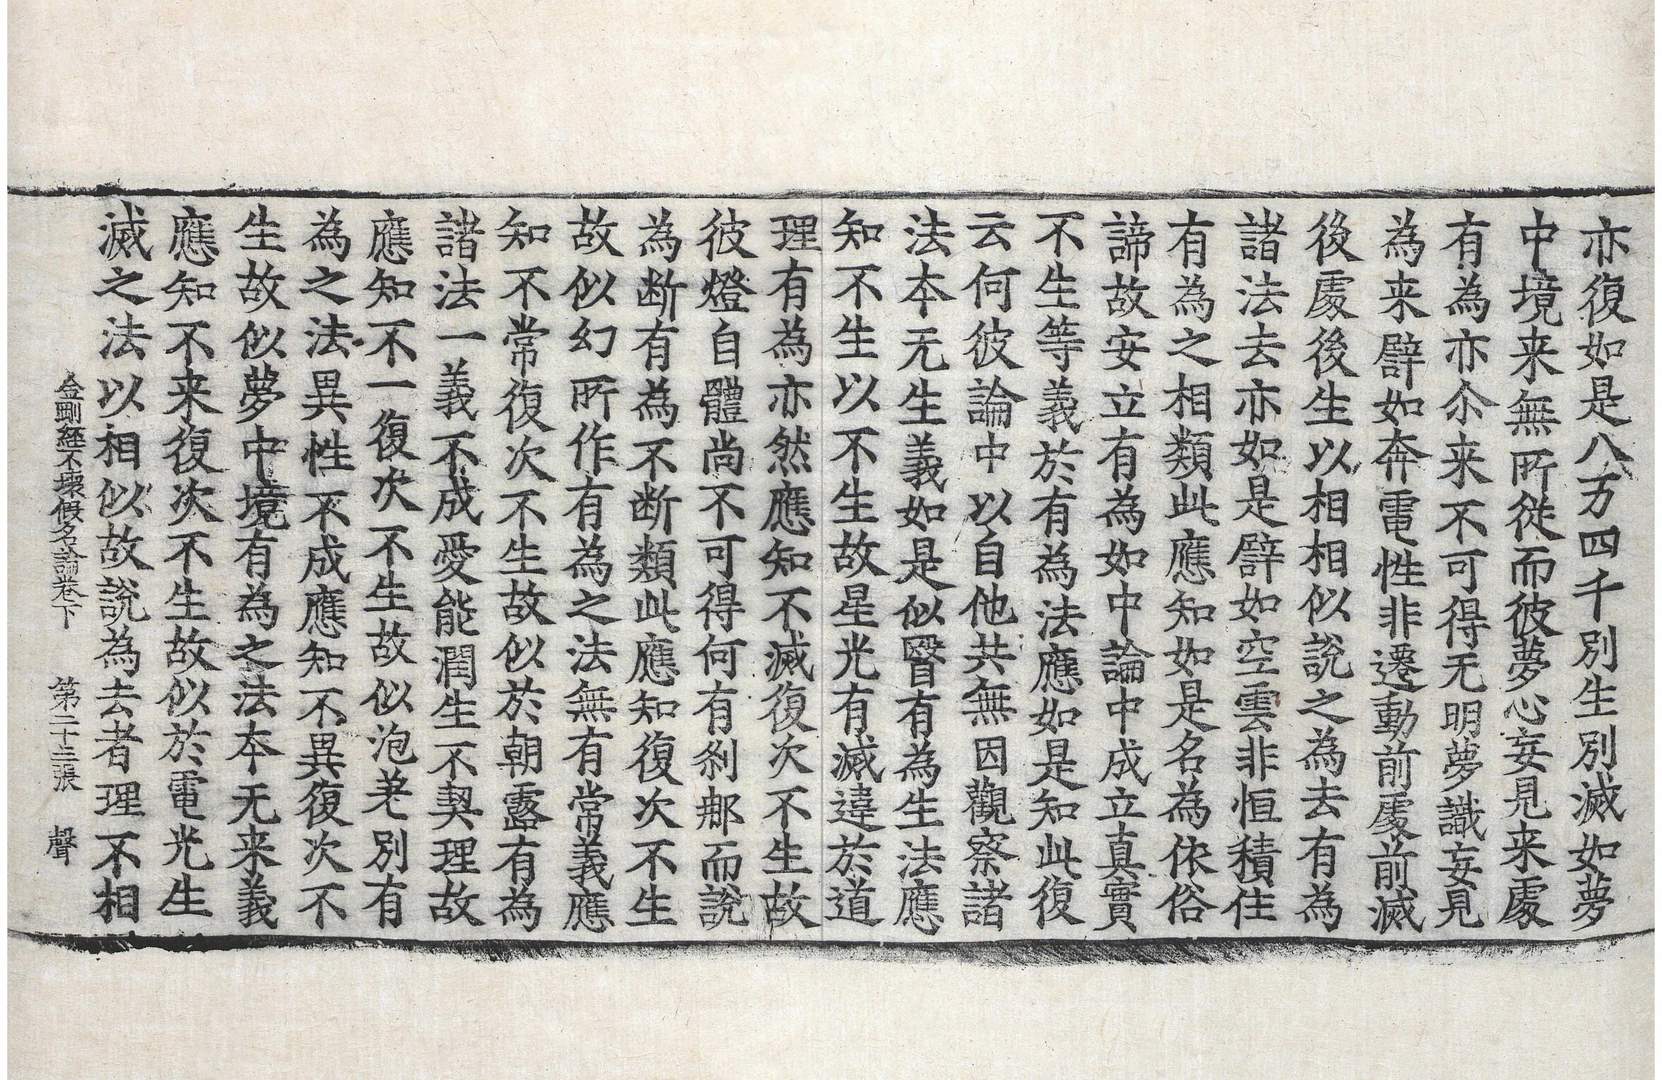 亦復如是八万四千別生別滅如夢
中境来無所從而彼夢心妄見来處
有為亦尒来不可得无明夢識妄見
為来譬如奔電性非遷動前處前滅
後處後生以相相似說之為去有為
諸法去亦如是譬如空雲非恒積住
有為之相類此應知如是名為依俗
諦故安立有為如中論中成立真實
不生等義於有為法應如是知此復
云何彼論中以自他共無因觀察諸
法本无生義如是似瞖有為生法應
知不生以不生故星光有滅違於道
理有為亦然應知不滅復次不生故
彼燈自體尚不可得何有剎那而說
為断有為不断類此應知復次不生
故似幻所作有為之法無有常義應
知不常復次不生故似於朝露有為
諸法一義不成愛能潤生不契理故
應知不一復次不生故似泡差別有
為之法異性不成應知不異復次不
生故似夢中境有為之法本无来義
應知不来復次不生故似於電光生
滅之法以相似故說為去者理不相
金剛經不壞假名論卷下 第二十三張 聲